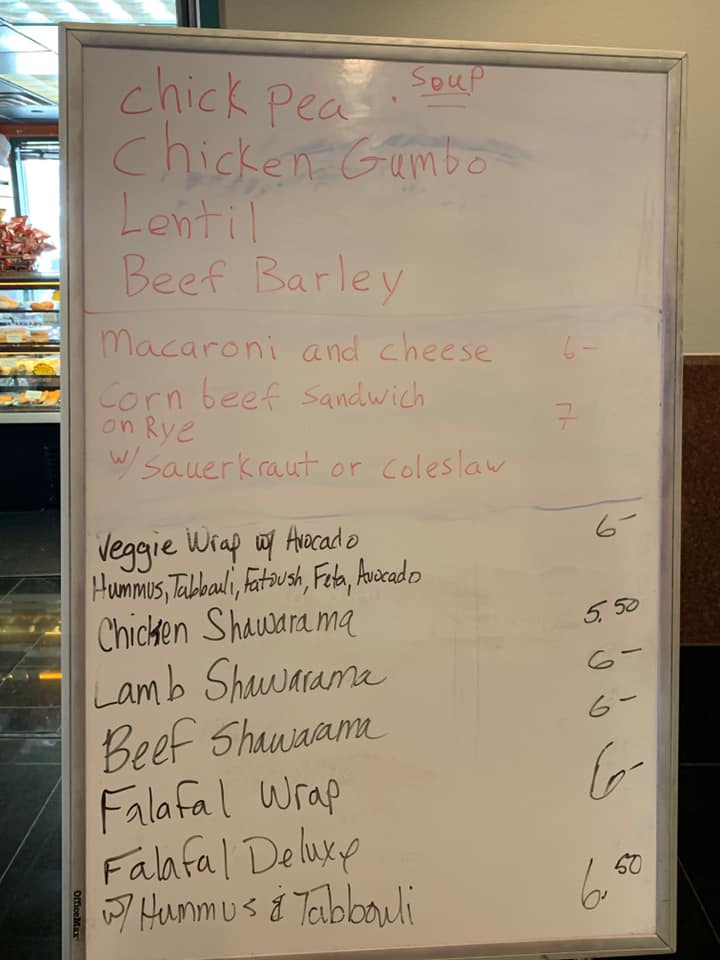 Chick Pea . Soup
Chicken Gumbo
Lentil
Beef Barley
Macaroni and cheese 6-
Corn beef Sandwich
on Rye 7
w/ Sauerkraut or Coleslaw
Veggie Wrap w/ Avocado 6-
Hummus, Tabbouli, Fatoush, Feta, Avocado
Chicken Shawarama 5.50
Lamb Shawarama 6-
Beef Shawarama 6-
Falafal Wrap 6-
Falafal Deluxe
w/ Hummus & Tabbouli 6.50
OfficeMax